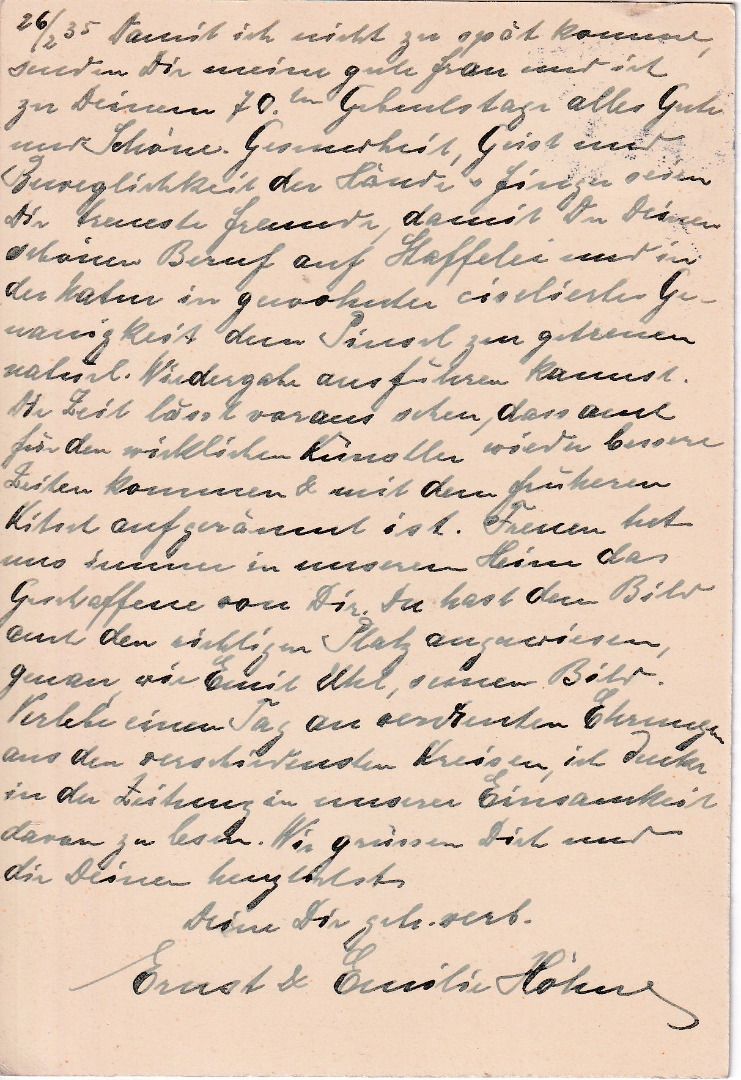 26/2 35 Damit ich nicht zu spät komme,
senden Dir meine gute Frau und ich
zu Deinem 70.ten Geburtstage alles Gute
und Schöne. Gesundheit, Geist und
Beweglichkeit der Hände & Finger seien
Dir treueste Freunde, damit Du Deinen
schönen Beruf auf Staffelei und in
der Natur in gewohnter ciselierter Ge-
nauigkeit dem Pinsel zur getreuen
natürl. Wiedergabe ausführen kannst.
Die Zeit lässt voraus sehen, dass auch
für den wirklichen Künstler wieder bessere
Zeiten kommen & mit dem früheren
Kitsch aufgeräumt ist. Freuen tut
uns immer in unserem Heim das
Geschaffene von Dir. Du hast dem Bild
auch den richtigen Platz angewiesen,
genau, wie Emil seinem Bild.
Verlebe einen Tag an verdienten Ehrungen
aus den verschiedensten Kreisen, ich denke
in der Zeitung in unserer Einsamkeit
davon zu lesen. Wir grüssen Dich und
die Deinen herzlichst
Deine Dir geb. verb.
Ernst & Emilie Höhne